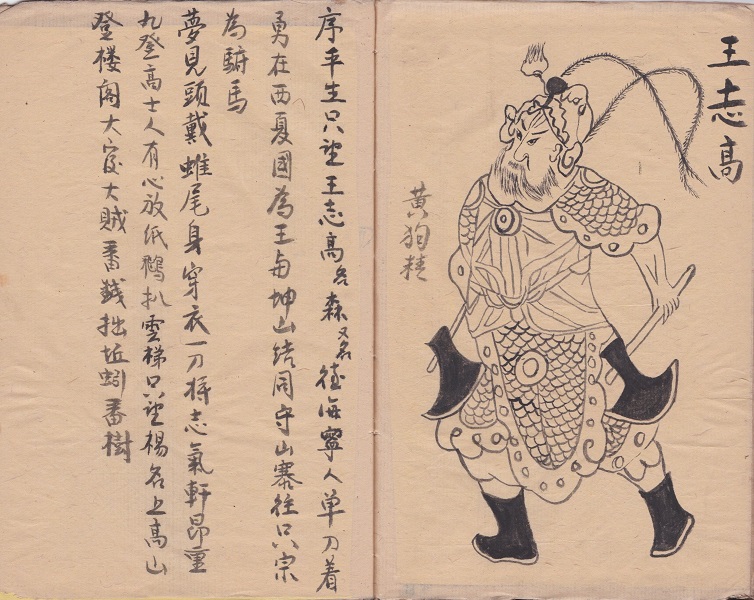 王志高
黄狗精
序平生只望王志高名森又名徃海寧人单刀着
勇在西夏國為王与坤山结同守山寨徃只宗
為駙馬
夢見頭戴雉尾身穿衣一刀将志氣軒昂重
九登高士人有心放纸鷂扒雲梯只望楊名上高山
登楼阁大宼大贼番錢拙坵蚓番樹